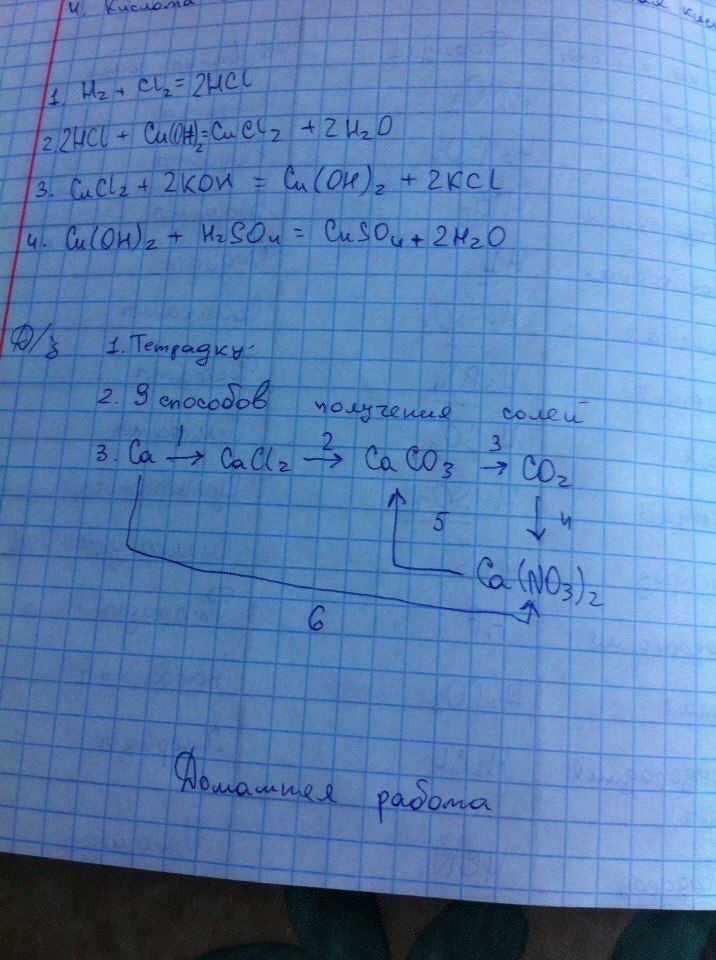 4. Кислота
1. H₂ + Cl₂ = 2HCl
2. 2HCl + Cu(OH)₂ = CuCl₂ + 2H₂O
3. CuCl₂ + 2KOH = Cu(OH)₂ + 2KCl
4. Cu(OH)₂ + H₂SO₄ = CuSO₄ + 2H₂O
Д/з 1. Тетрадку.
2. 9 способов получения солей
3. Ca 1→ CaCl₂ 2→ CaCO₃ 3→ CO₂
5 ↓ 4
Ca(NO₃)₂
6
Домашняя работа